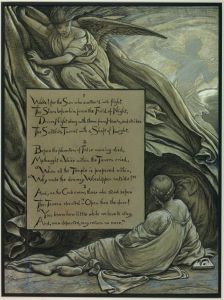 1
Wake! For the Sun who scatter'd into flight
The Stars before him from the Field of Night,
Drives Night along with them from Heav'n, and strikes
The Sultán's Turret with a Shaft of Light.
2
Before the phantom of False morning died,
Methought a Voice within the Tavern cried,
"When all the Temple is prepared within,
Why nods the drowsy Worshipper outside?"
3
And, as the Cock crew, those who stood before
The Tavern shouted—"Open then the door!
You know how little while we have to stay,
And, once departed, may return no more."